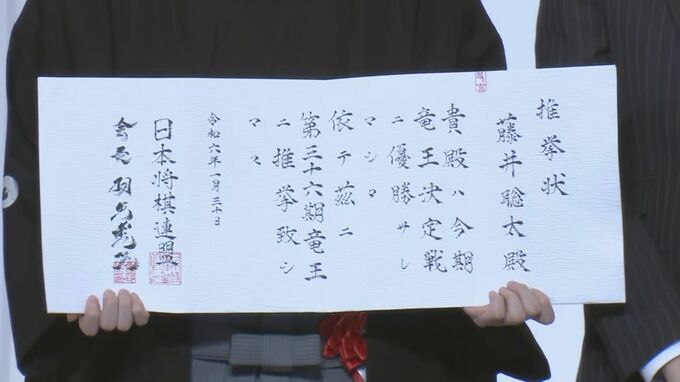 推挙状
藤井聡太殿
貴殿ハ今期
竜王決定戦
ニ優勝サレ
マシタ
依テ茲ニ
第三十六期竜王
ニ推挙致シ
マス
令和六年一月三十日
日本将棋連盟
会長 羽生善治